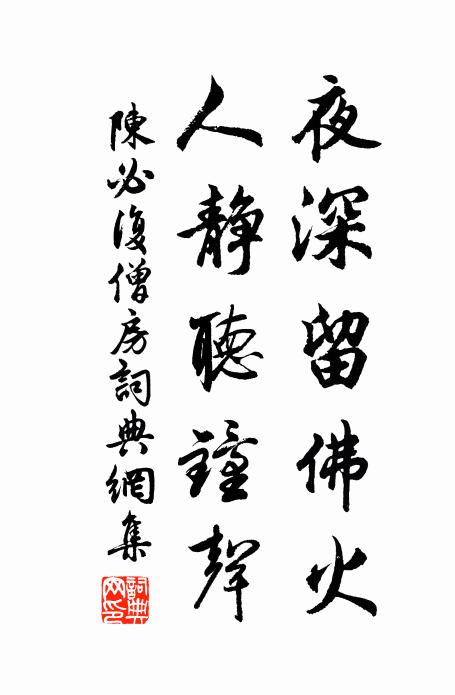 夜深留佛火
人靜聽鐘聲
陳必復僧房詞典網集
詞典网印